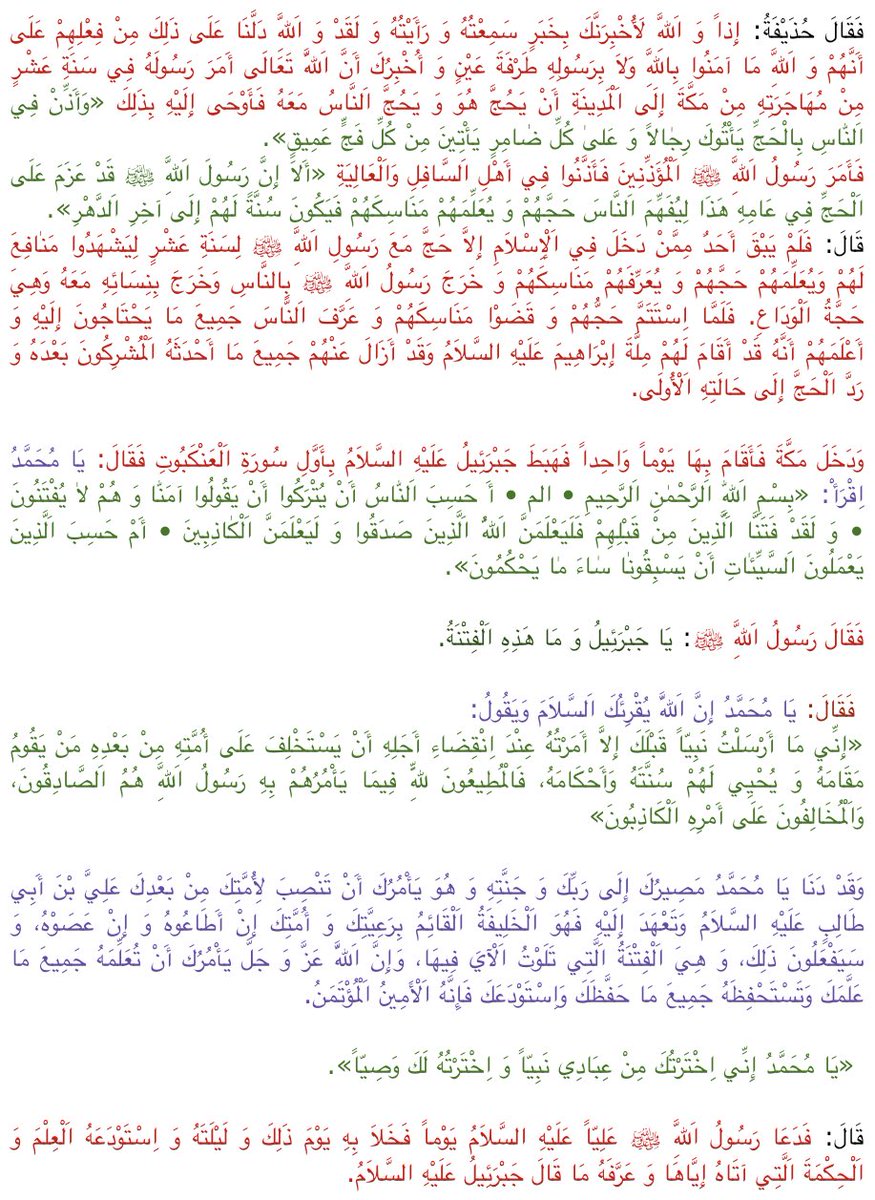 فَقَالَ حُذَيْفَةُ: إِذاً وَ اَللَّهِ لَأُخْبِرَنَّكَ بِخَبَرٍ سَمِعْتُهُ وَ رَأَيْتُهُ وَ لَقَدْ وَ اَللَّهِ دَلَّنَا عَلَى ذَلِكَ مِنْ فِعْلِهِمْ عَلَى
أَنَّهُمْ وَ اَللَّهِ مَا آمَنُوا بِاللَّهِ وَلَا بِرَسُولِهِ طَرْفَةَ عَيْنٍ وَ أُخْبِرُكَ أَنَّ اَللَّهَ تَعَالَى أَمَرَ رَسُولَهُ فِي سَنَةِ عَشْرٍ
مِنْ مُهَاجَرَتِهِ مِنْ مَكَّةَ إِلَى اَلْمَدِينَةِ أَنْ يَحُجَّ هُوَ وَ يَحُجَّ اَلنَّاسُ مَعَهُ فَأَوْحَى إِلَيْهِ بِذَلِكَ «وَأَذِّنْ فِي
اَلنّٰاسِ بِالْحَجِّ يَأْتُوكَ رِجٰالاً وَ عَلىٰ كُلِّ ضٰامِرٍ يَأْتِينَ مِنْ كُلِّ فَجٍّ عَمِيقٍ».
فَأَمَرَ رَسُولُ اَللَّهِ ﷺ اَلْمُؤَذِّنِينَ فَأَذَّنُوا فِي أَهْلِ اَلسَّافِلِ وَالْعَالِيَةِ «أَلاَ إِنَّ رَسُولَ اَللَّهِ ﷺ قَدْ عَزَمَ عَلَى
اَلْحَجِّ فِي عَامِهِ هَذَا لِيُفَهِّمَ اَلنَّاسَ حَجَّهُمْ وَ يُعَلِّمَهُمْ مَنَاسِكَهُمْ فَيَكُونَ سُنَّةً لَهُمْ إِلَى آخِرِ اَلدَّهْرِ».
قَالَ: فَلَمْ يَبْقَ أَحَدٌ مِمَّنْ دَخَلَ فِي اَلْإِسْلاَمِ إِلاَّ حَجَّ مَعَ رَسُولِ اَللَّهِ ﷺ لِسَنَةِ عَشْرٍ لِيَشْهَدُوا مَنَافِعَ
لَهُمْ وَيُعَلِّمَهُمْ حَجَّهُمْ وَ يُعَرِّفَهُمْ مَنَاسِكَهُمْ وَ خَرَجَ رَسُولُ اَللَّهِ ﷺ بِالنَّاسِ وَخَرَجَ بِنِسَائِهِ مَعَهُ وَهِيَ
حَجَّةُ اَلْوَدَاعِ. فَلَمَّا اِسْتَتَمَّ حَجُّهُمْ وَ قَضَوْا مَنَاسِكَهُمْ وَ عَرَّفَ اَلنَّاسَ جَمِيعَ مَا يَحْتَاجُونَ إِلَيْهِ وَ
أَعْلَمَهُمْ أَنَّهُ قَدْ أَقَامَ لَهُمْ مِلَّةَ إِبْرَاهِيمَ عَلَيْهِ السَّلاَمُ وَقَدْ أَزَالَ عَنْهُمْ جَمِيعَ مَا أَحْدَثَهُ اَلْمُشْرِكُونَ بَعْدَهُ وَ
رَدَّ اَلْحَجَّ إِلَى حَالَتِهِ اَلْأُولَى.
وَدَخَلَ مَكَّةَ فَأَقَامَ بِهَا يَوْماً وَاحِداً فَهَبَطَ جَبْرَئِيلُ عَلَيْهِ السَّلاَمُ بِأَوَّلِ سُورَةِ اَلْعَنْكَبُوتِ فَقَالَ: يَا مُحَمَّدُ
اِقْرَأْ: «بِسْمِ اَللّٰهِ اَلرَّحْمٰنِ اَلرَّحِيمِ • الم • أَ حَسِبَ اَلنّٰاسُ أَنْ يُتْرَكُوا أَنْ يَقُولُوا آمَنّٰا وَ هُمْ لاٰ يُفْتَنُونَ
• وَ لَقَدْ فَتَنَّا اَلَّذِينَ مِنْ قَبْلِهِمْ فَلَيَعْلَمَنَّ اَللّٰهُ اَلَّذِينَ صَدَقُوا وَ لَيَعْلَمَنَّ اَلْكٰاذِبِينَ • أَمْ حَسِبَ اَلَّذِينَ
يَعْمَلُونَ اَلسَّيِّئٰاتِ أَنْ يَسْبِقُونٰا سٰاءَ مٰا يَحْكُمُونَ».
فَقَالَ رَسُولُ اَللَّهِ ﷺ: يَا جَبْرَئِيلُ وَ مَا هَذِهِ اَلْفِتْنَةُ.
فَقَالَ: يَا مُحَمَّدُ إِنَّ اَللَّهَ يُقْرِئُكَ اَلسَّلاَمَ وَيَقُولُ:
«إِنِّي مَا أَرْسَلْتُ نَبِيّاً قَبْلَكَ إِلاَّ أَمَرْتُهُ عِنْدَ اِنْقِضَاءِ أَجَلِهِ أَنْ يَسْتَخْلِفَ عَلَى أُمَّتِهِ مِنْ بَعْدِهِ مَنْ يَقُومُ
مَقَامَهُ وَ يُحْيِي لَهُمْ سُنَّتَهُ وَأَحْكَامَهُ، فَالْمُطِيعُونَ لِلَّهِ فِيمَا يَأْمُرُهُمْ بِهِ رَسُولُ اَللَّهِ هُمُ الصَّادِقُونَ،
وَالْمُخَالِفُونَ عَلَى أَمْرِهِ اَلْكَاذِبُونَ»
وَقَدْ دَنَا يَا مُحَمَّدُ مَصِيرُكَ إِلَى رَبِّكَ وَ جَنَّتِهِ وَ هُوَ يَأْمُرُكَ أَنْ تَنْصِبَ لِأُمَّتِكَ مِنْ بَعْدِكَ عَلِيَّ بْنَ أَبِي
طَالِبٍ عَلَيْهِ السَّلاَمُ وَتَعْهَدَ إِلَيْهِ فَهُوَ اَلْخَلِيفَةُ اَلْقَائِمُ بِرَعِيَّتِكَ وَ أُمَّتِكَ إِنْ أَطَاعُوهُ وَ إِنْ عَصَوْهُ، وَ
سَيَفْعَلُونَ ذَلِكَ، وَ هِيَ اَلْفِتْنَةُ اَلَّتِي تَلَوْتُ اَلْآيَ فِيهَا، وَإِنَّ اَللَّهَ عَزَّ وَ جَلَّ يَأْمُرُكَ أَنْ تُعَلِّمَهُ جَمِيعَ مَا
عَلَّمَكَ وَتَسْتَحْفِظَهُ جَمِيعَ مَا حَفَّظَكَ وَاِسْتَوْدَعَكَ فَإِنَّهُ اَلْأَمِينُ اَلْمُؤْتَمَنُ.
«يَا مُحَمَّدُ إِنِّي اِخْتَرْتُكَ مِنْ عِبَادِي نَبِيّاً وَ اِخْتَرْتُهُ لَكَ وَصِيّاً».
قَالَ: فَدَعَا رَسُولُ اَللَّهِ ﷺ عَلِيّاً عَلَيْهِ السَّلاَمُ يَوْماً فَخَلاَ بِهِ يَوْمَ ذَلِكَ وَ لَيْلَتَهُ وَ اِسْتَوْدَعَهُ اَلْعِلْمَ وَ
اَلْحِكْمَةَ اَلَّتِي آتَاهُ إِيَّاهَا وَ عَرَّفَهُ مَا قَالَ جَبْرَئِيلُ عَلَيْهِ السَّلاَمُ.